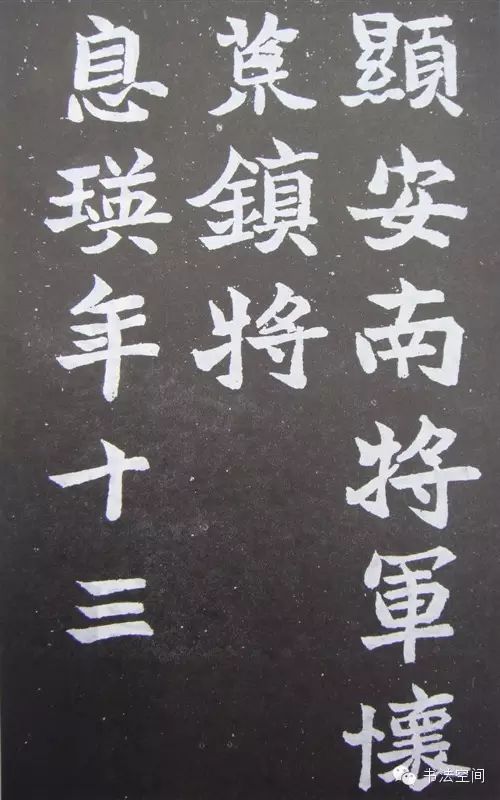 顯安南将軍懷
荒鎮将
息瑛年十三
书法空间